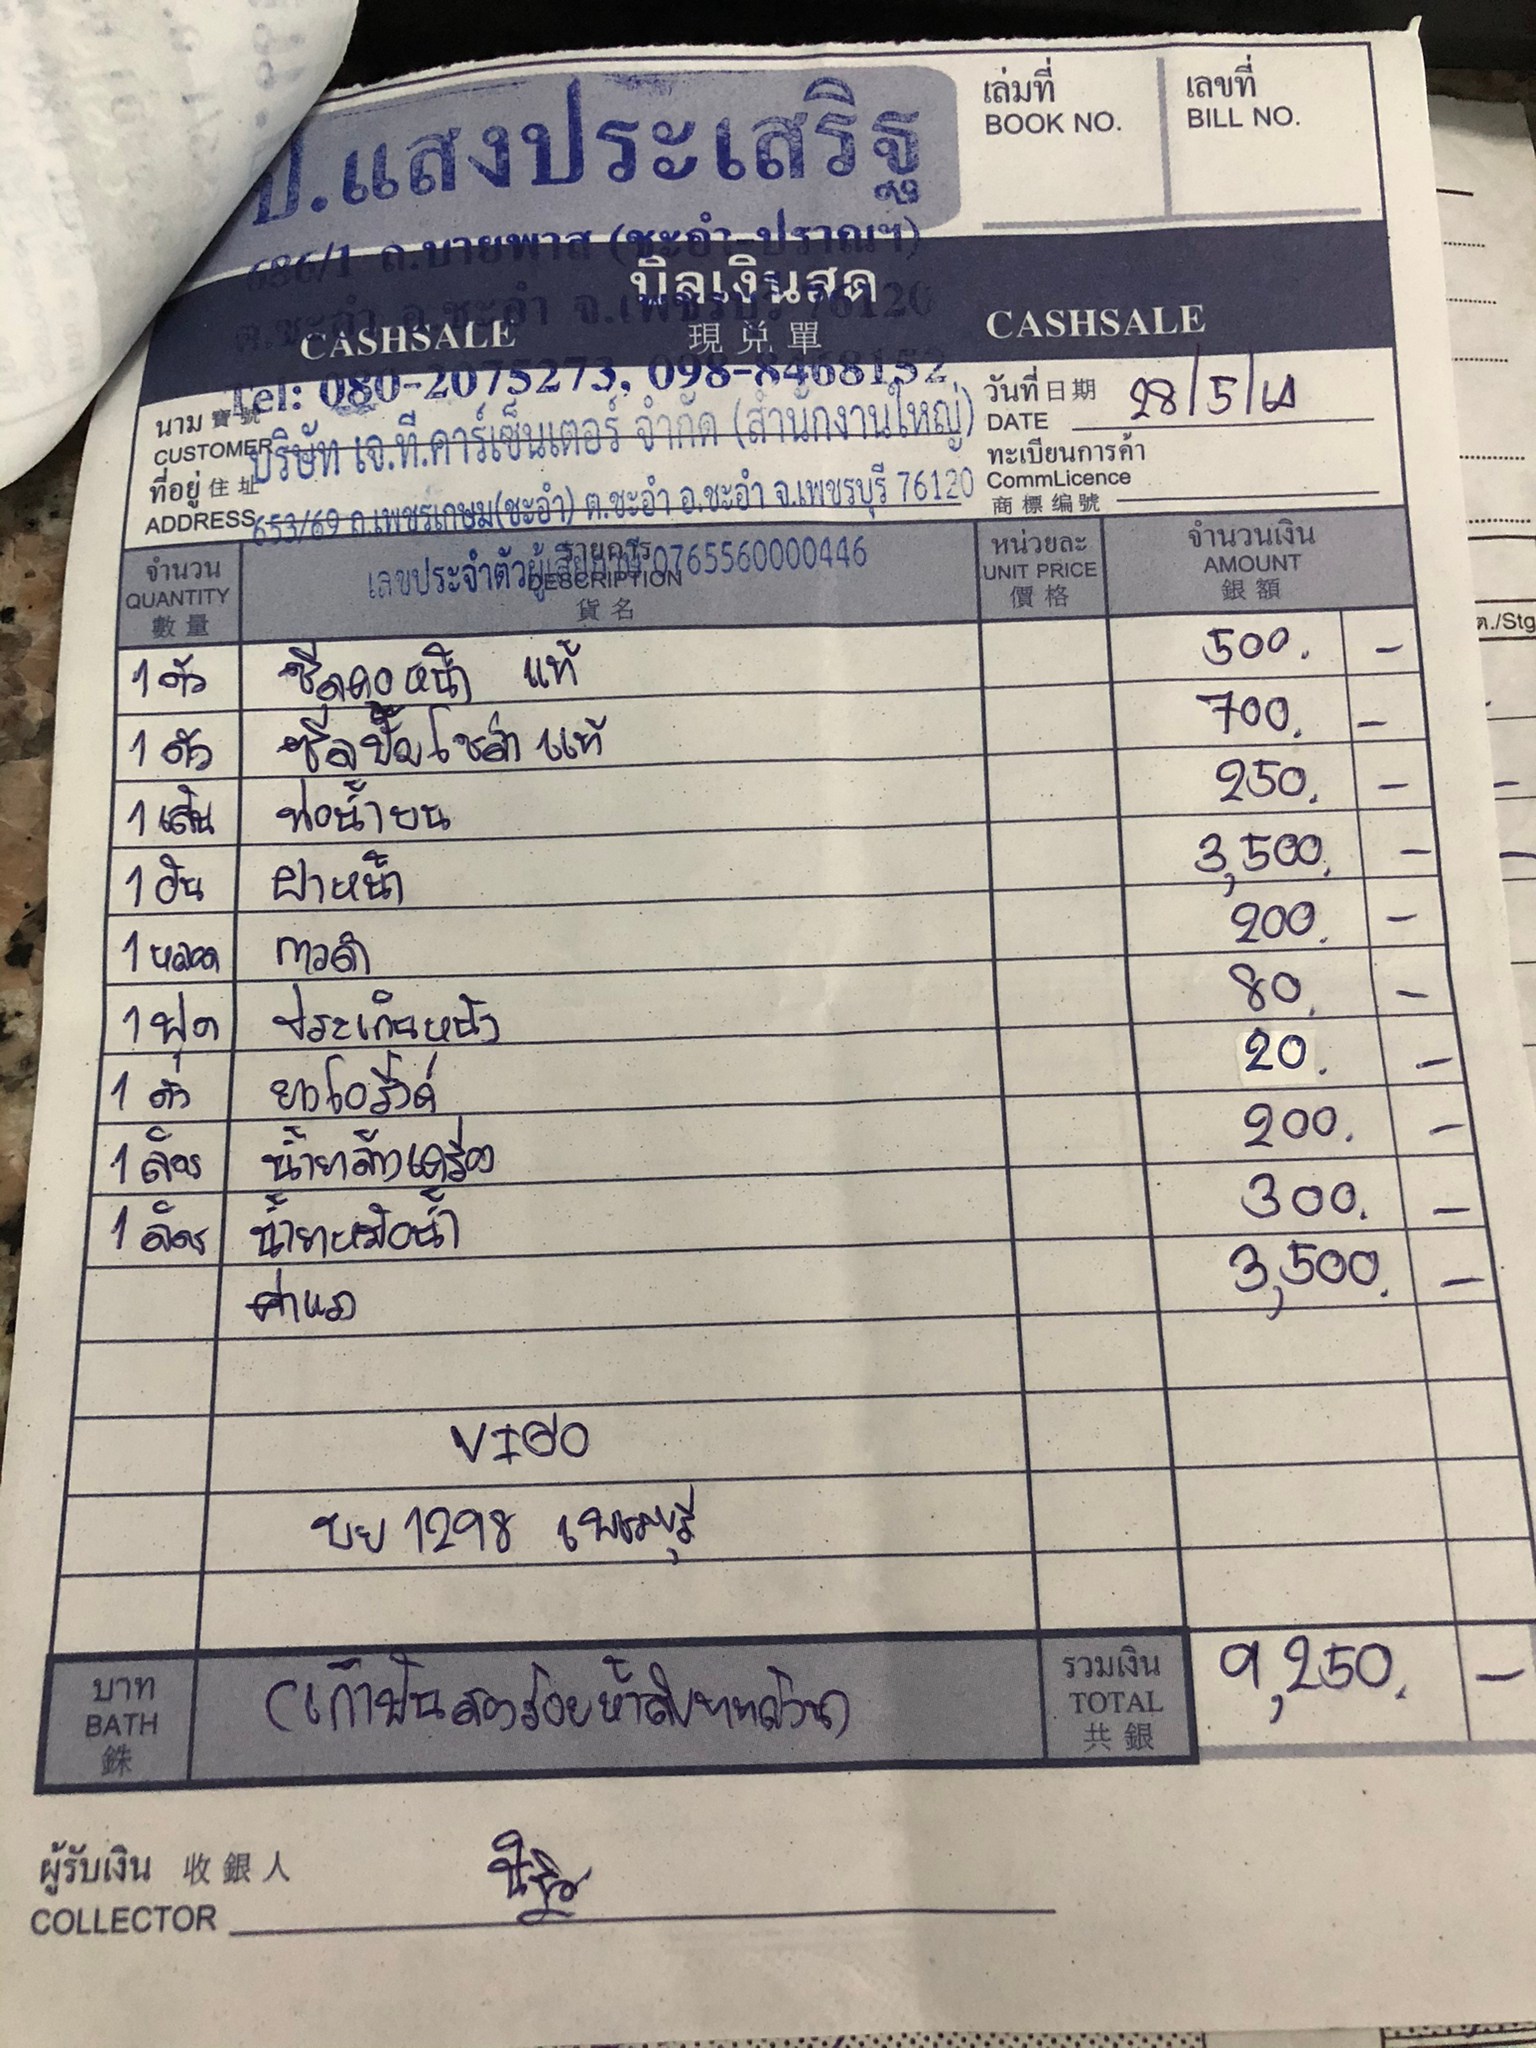 ป.แสงประเสริฐ
เล่มที่
BOOK NO.
เลขที่
BILL NO.
686/1 ถ.บายพาส (ชะอำ-ปราณฯ)
บิลเงินสด
ต.ชะอำ อ.ชะอำ จ.เพชรบุรี 76120
CASHSALE 現兌單 CASHSALE
Tel: 080-2075273, 098-8468152
วันที่ 日期
DATE 28/5/
นาม 寶號
CUSTOMER บริษัท เจ.ที.คาร์เซ็นเตอร์ จำกัด (สำนักงานใหญ่)
ทะเบียนการค้า
CommLicence
商標編號
ที่อยู่ 住址
ADDRESS 653/69 ถ.เพชรเกษม(ชะอำ) ต.ชะอำ อ.ชะอำ จ.เพชรบุรี 76120
เลขประจำตัวผู้เสียภาษี 0765560000446
จำนวน
QUANTITY
數量
รายการ
DESCRIPTION
貨名
หน่วยละ
UNIT PRICE
價格
จำนวนเงิน
AMOUNT
銀額
1 ตัว ซีลคอหน้า แท้ 500. -
1 ตัว ซีลปั๊มโซล่า แท้ 700. -
1 เส้น ท่อน้ำบน 250. -
1 อัน ฝาหน้า 3,500. -
1 หลอด กาวดำ 200. -
1 ชุด ประเก็นหน้า 80. -
1 ตัว ยางโอริ้งค์ 20. -
1 ลิตร น้ำยาล้างเครื่อง 200. -
1 ลิตร น้ำยาหม้อน้ำ 300. -
ค่าแรง 3,500. -
VIGO
บย 1298 เพชรบุรี
บาท
BATH
銖
(เก้าพันสองร้อยห้าสิบบาทถ้วน)
รวมเงิน
TOTAL
共銀
9,250. -
ผู้รับเงิน 收銀人
COLLECTOR
ต./Stg